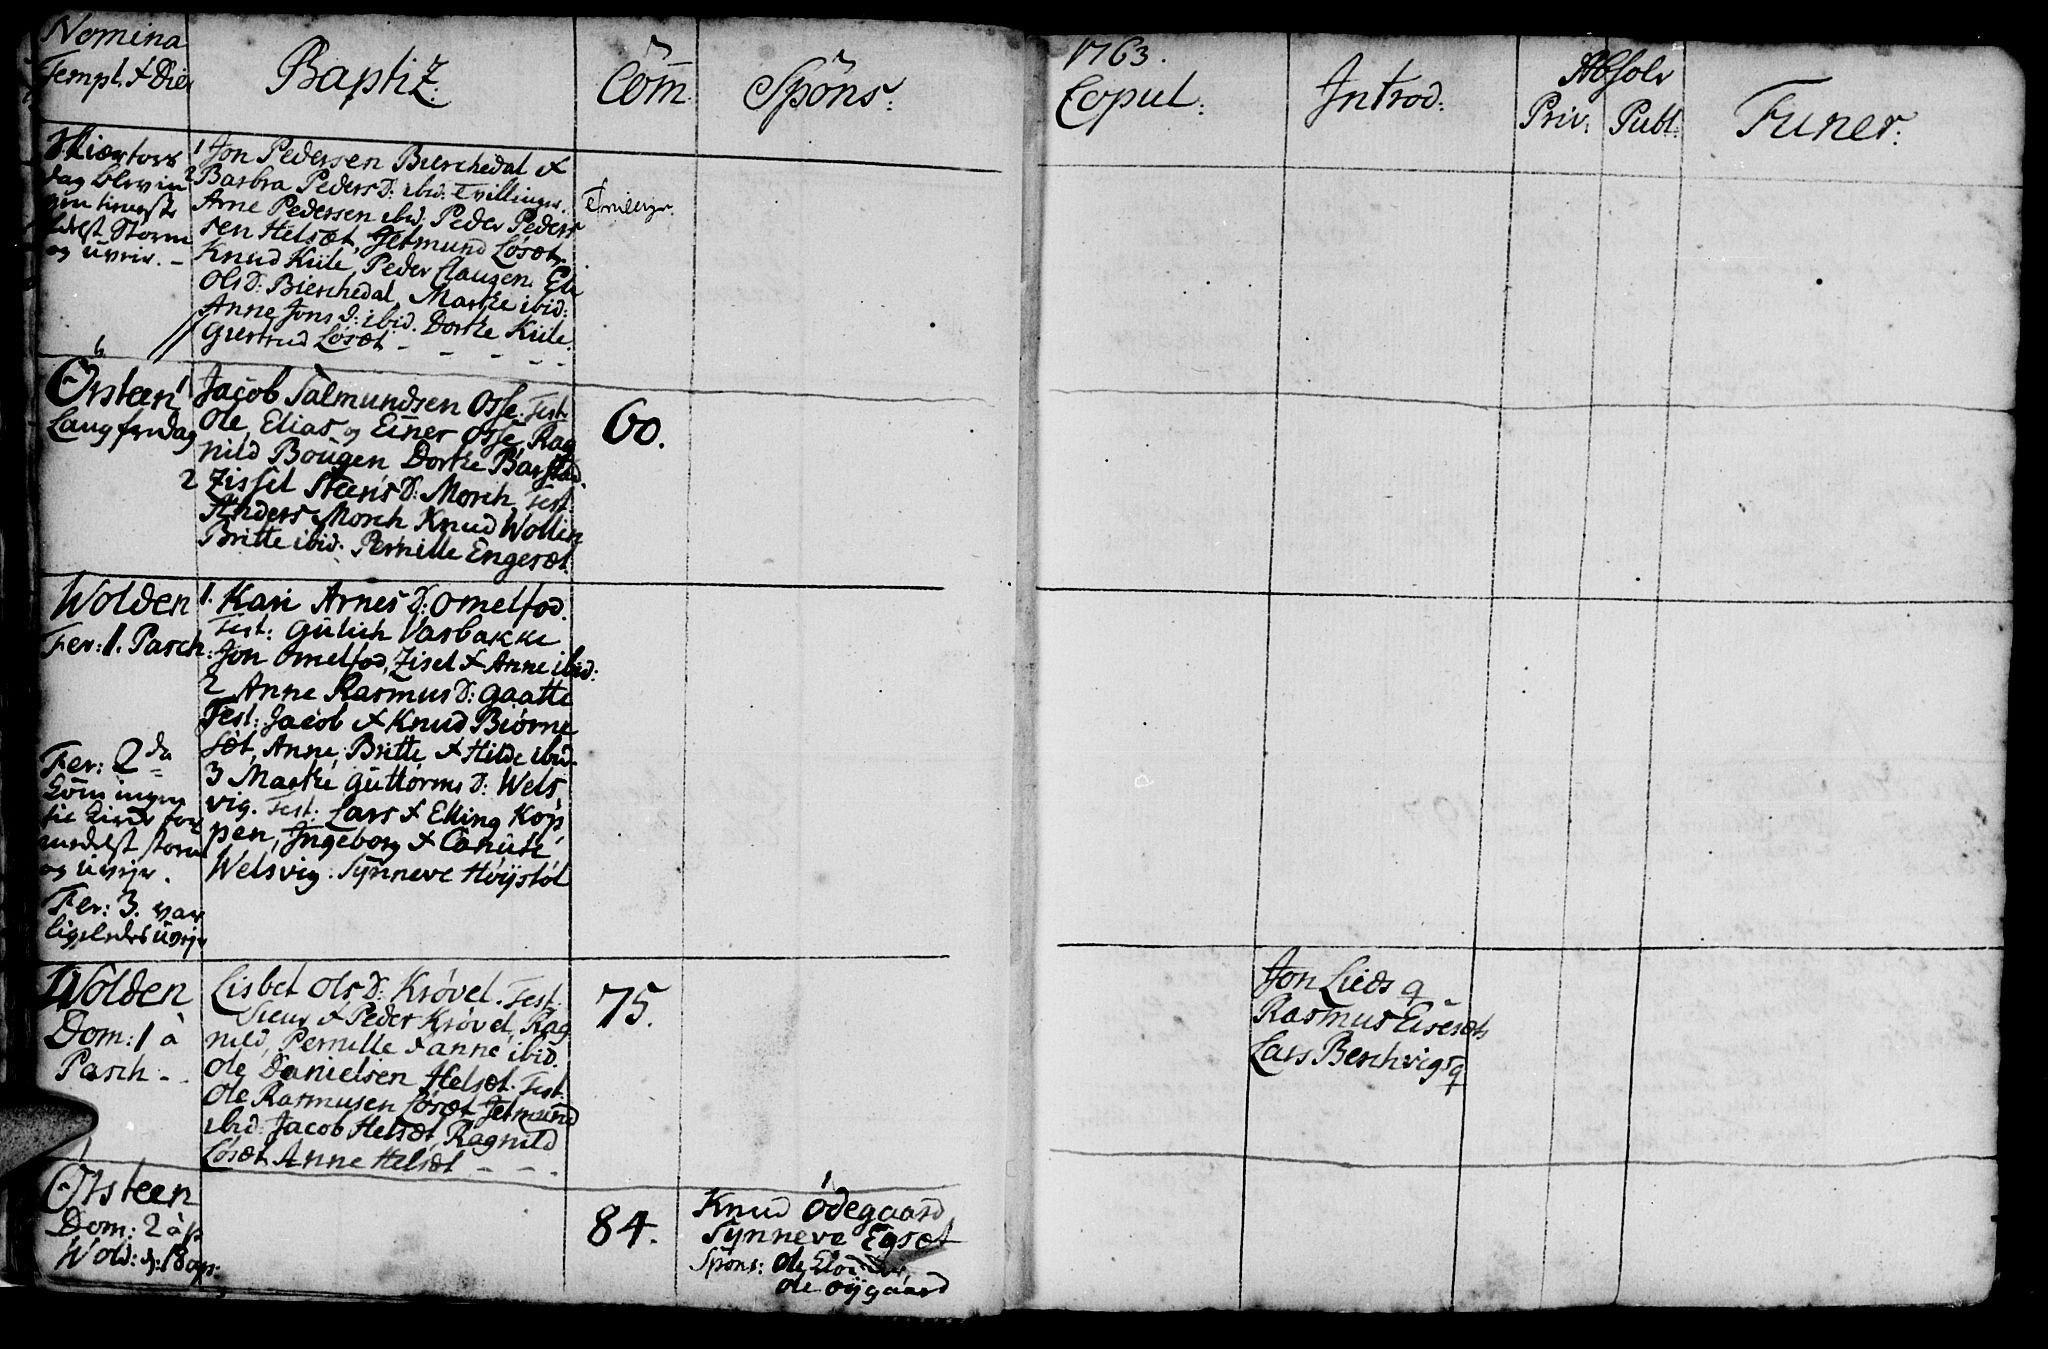 Nomina
Templ. & Dies
Baptiz.
Com̄.
Spons:
1763.
Copul:
Introd:
Absolv
Priv:
Publ:
Funer:
Skiærtors
dag blev in
gen
delst Storm
og üveir. -
1 Jon Pedersen Bierchedal &
2 Barbra Peders D: ibid: Tvillinger.
Arne Pedersen ibid: Peder Peder
sen Helsæt, Jetmund Løsæt,
Knud Kiile, Peder Clausen, Ele
Ols D: Bierchedal, Marte ibid:
Anne Jons D: ibid. Dorte Kiile.
Giertrud Løsæt - - - - -
Ørsteen
Langfredag
1 Jacob Salmundsen Osse. Test.
Ole, Elias og Einer Osse, Rag
nild Bougen Dorte Barstad.
2 Zissel Steens D: Morch, Test:
Anders Morch Knud Wollen
Britte ibid. Pernille Engeset.
60.
Wolden
Fer: 1. Pasch:
1. Kari Arnes D: Omelfod.
Test: Gulich Varbakke
Jon Omelfod, Zisel & Anne ibid:
2 Anne Rasmus D: Gaatte
Test: Jacob & Knud Biørne
sæt, Anne, Britte, & Hilde ibid.
3 Marte Guttorms D: Wels
vig. Test: Lars & Elling Kop
pen, Ingeborg & Canute
Welsvig. Synneve Høystøl
Fer: 2da
Kom ingen
til Kirke for
medelst storm
og üveyr.
Fer: 3. var
ligeledes üveyr
Wolden
Dom: 1 à
Pasch - -
Lisbet Ols D: Krøvel. Test.
Sieur & Peder Krøvel, Rag
nild, Pernille & Anne ibid.
Ole Danielsen Helsæt. Test.
Ole Rasmusen Løsæt Jetmund
ibid: Jacob Helsæt, Ragnild
Løsæt Anne Helsæt - - -
75.
Jon Lieds q
Rasmus Eisesæts
Lars Berchvigs q
Ørsteen
Dom: 2 à p
84.
1
Knud Ødegaard
Synneve Egset
Spons: Ole
Ole Oygaard